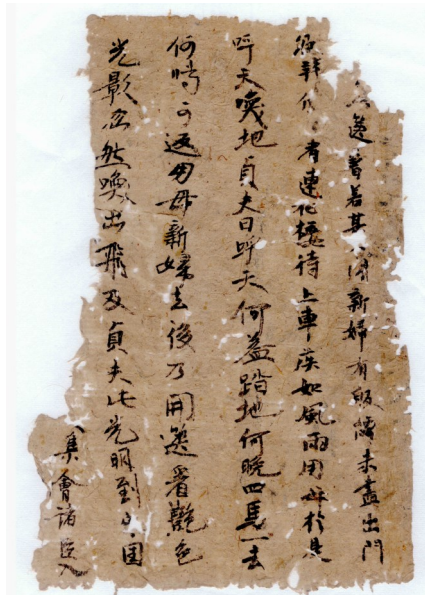 若其開新婦有語未盡出門
拜有連花待上車疾如風雨用母於是
呼天喚地貞夫曰呼天何益踏地何晚四馬一去
何時可返用母新婦去後乃開看艷色
光影忽然喚出飛及貞夫此光明到国
集會諸臣入